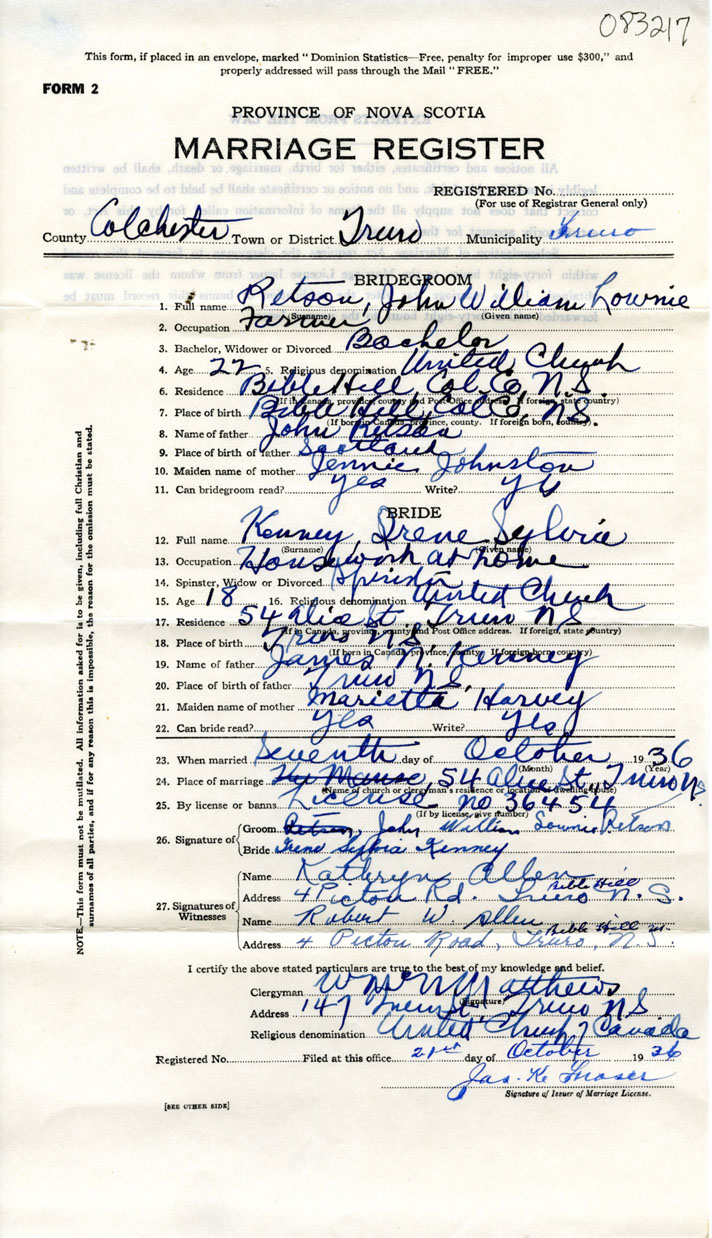 083217
This form, if placed in an envelope, marked "Dominion Statistics—Free, penalty for improper use $300," and
properly addressed will pass through the Mail "FREE."
FORM 2
PROVINCE OF NOVA SCOTIA
MARRIAGE REGISTER
REGISTERED No.
(For use of Registrar General only)
County Colchester Town or District Truro Municipality Truro
BRIDEGROOM
1. Full name Retson, John William Lownie
(Surname) (Given name)
2. Occupation Farmer
3. Bachelor, Widower or Divorced Bachelor
4. Age 22 5. Religious denomination United Church
6. Residence Bible Hill, Col. Co. N.S.
(If in Canada, province, county and Post Office address. If foreign, state country)
7. Place of birth Bible Hill, Col. Co., N.S.
(If born in Canada, province, county. If foreign born, country)
8. Name of father John Retson
9. Place of birth of father Scotland
10. Maiden name of mother Jennie Johnston
11. Can bridegroom read? Yes Write? Yes
BRIDE
12. Full name Kenney, Irene Sylvia
(Surname) (Given name)
13. Occupation Housework at home
14. Spinster, Widow or Divorced Spinster
15. Age 18 16. Religious denomination United Church
17. Residence 54 Alice St., Truro N.S.
(If in Canada, province, county and Post Office address. If foreign, state country)
18. Place of birth Truro N.S.
(If born in Canada, province, county. If foreign born, country)
19. Name of father James N. Kenney
20. Place of birth of father Truro N.S.
21. Maiden name of mother Marietta Harvey
22. Can bride read? Yes Write? Yes
23. When married Seventh day of October 1936
(Month) (Year)
24. Place of marriage The Manse, 54 Alice St., Truro N.S.
(Name of church or clergyman's residence or location of dwelling house)
25. By license or banns License no 36454
(If by license, give number)
26. Signature of
Groom Retson, John William Lownie Retson
Bride Irene Sylvia Kenney
27. Signatures of Witnesses
Name Kathryn Allen
Bible Hill
Address 4 Pictou Rd. Truro N.S.
Name Robert W. Allen
Bible Hill
Address 4 Pictou Road, Truro, N.S.
I certify the above stated particulars are true to the best of my knowledge and belief.
Clergyman Matthews
(Signature)
Address 147 St. Truro N.S.
Religious denomination United Church of Canada
Registered No. Filed at this office 21st day of October 1936
Jas. K. Fraser
Signature of Issuer of Marriage License.
[SEE OTHER SIDE]
NOTE.—This form must not be mutilated. All information asked for is to be given, including full Christian and
surnames of all parties, and if for any reason this is impossible, the reason for the omission must be stated.